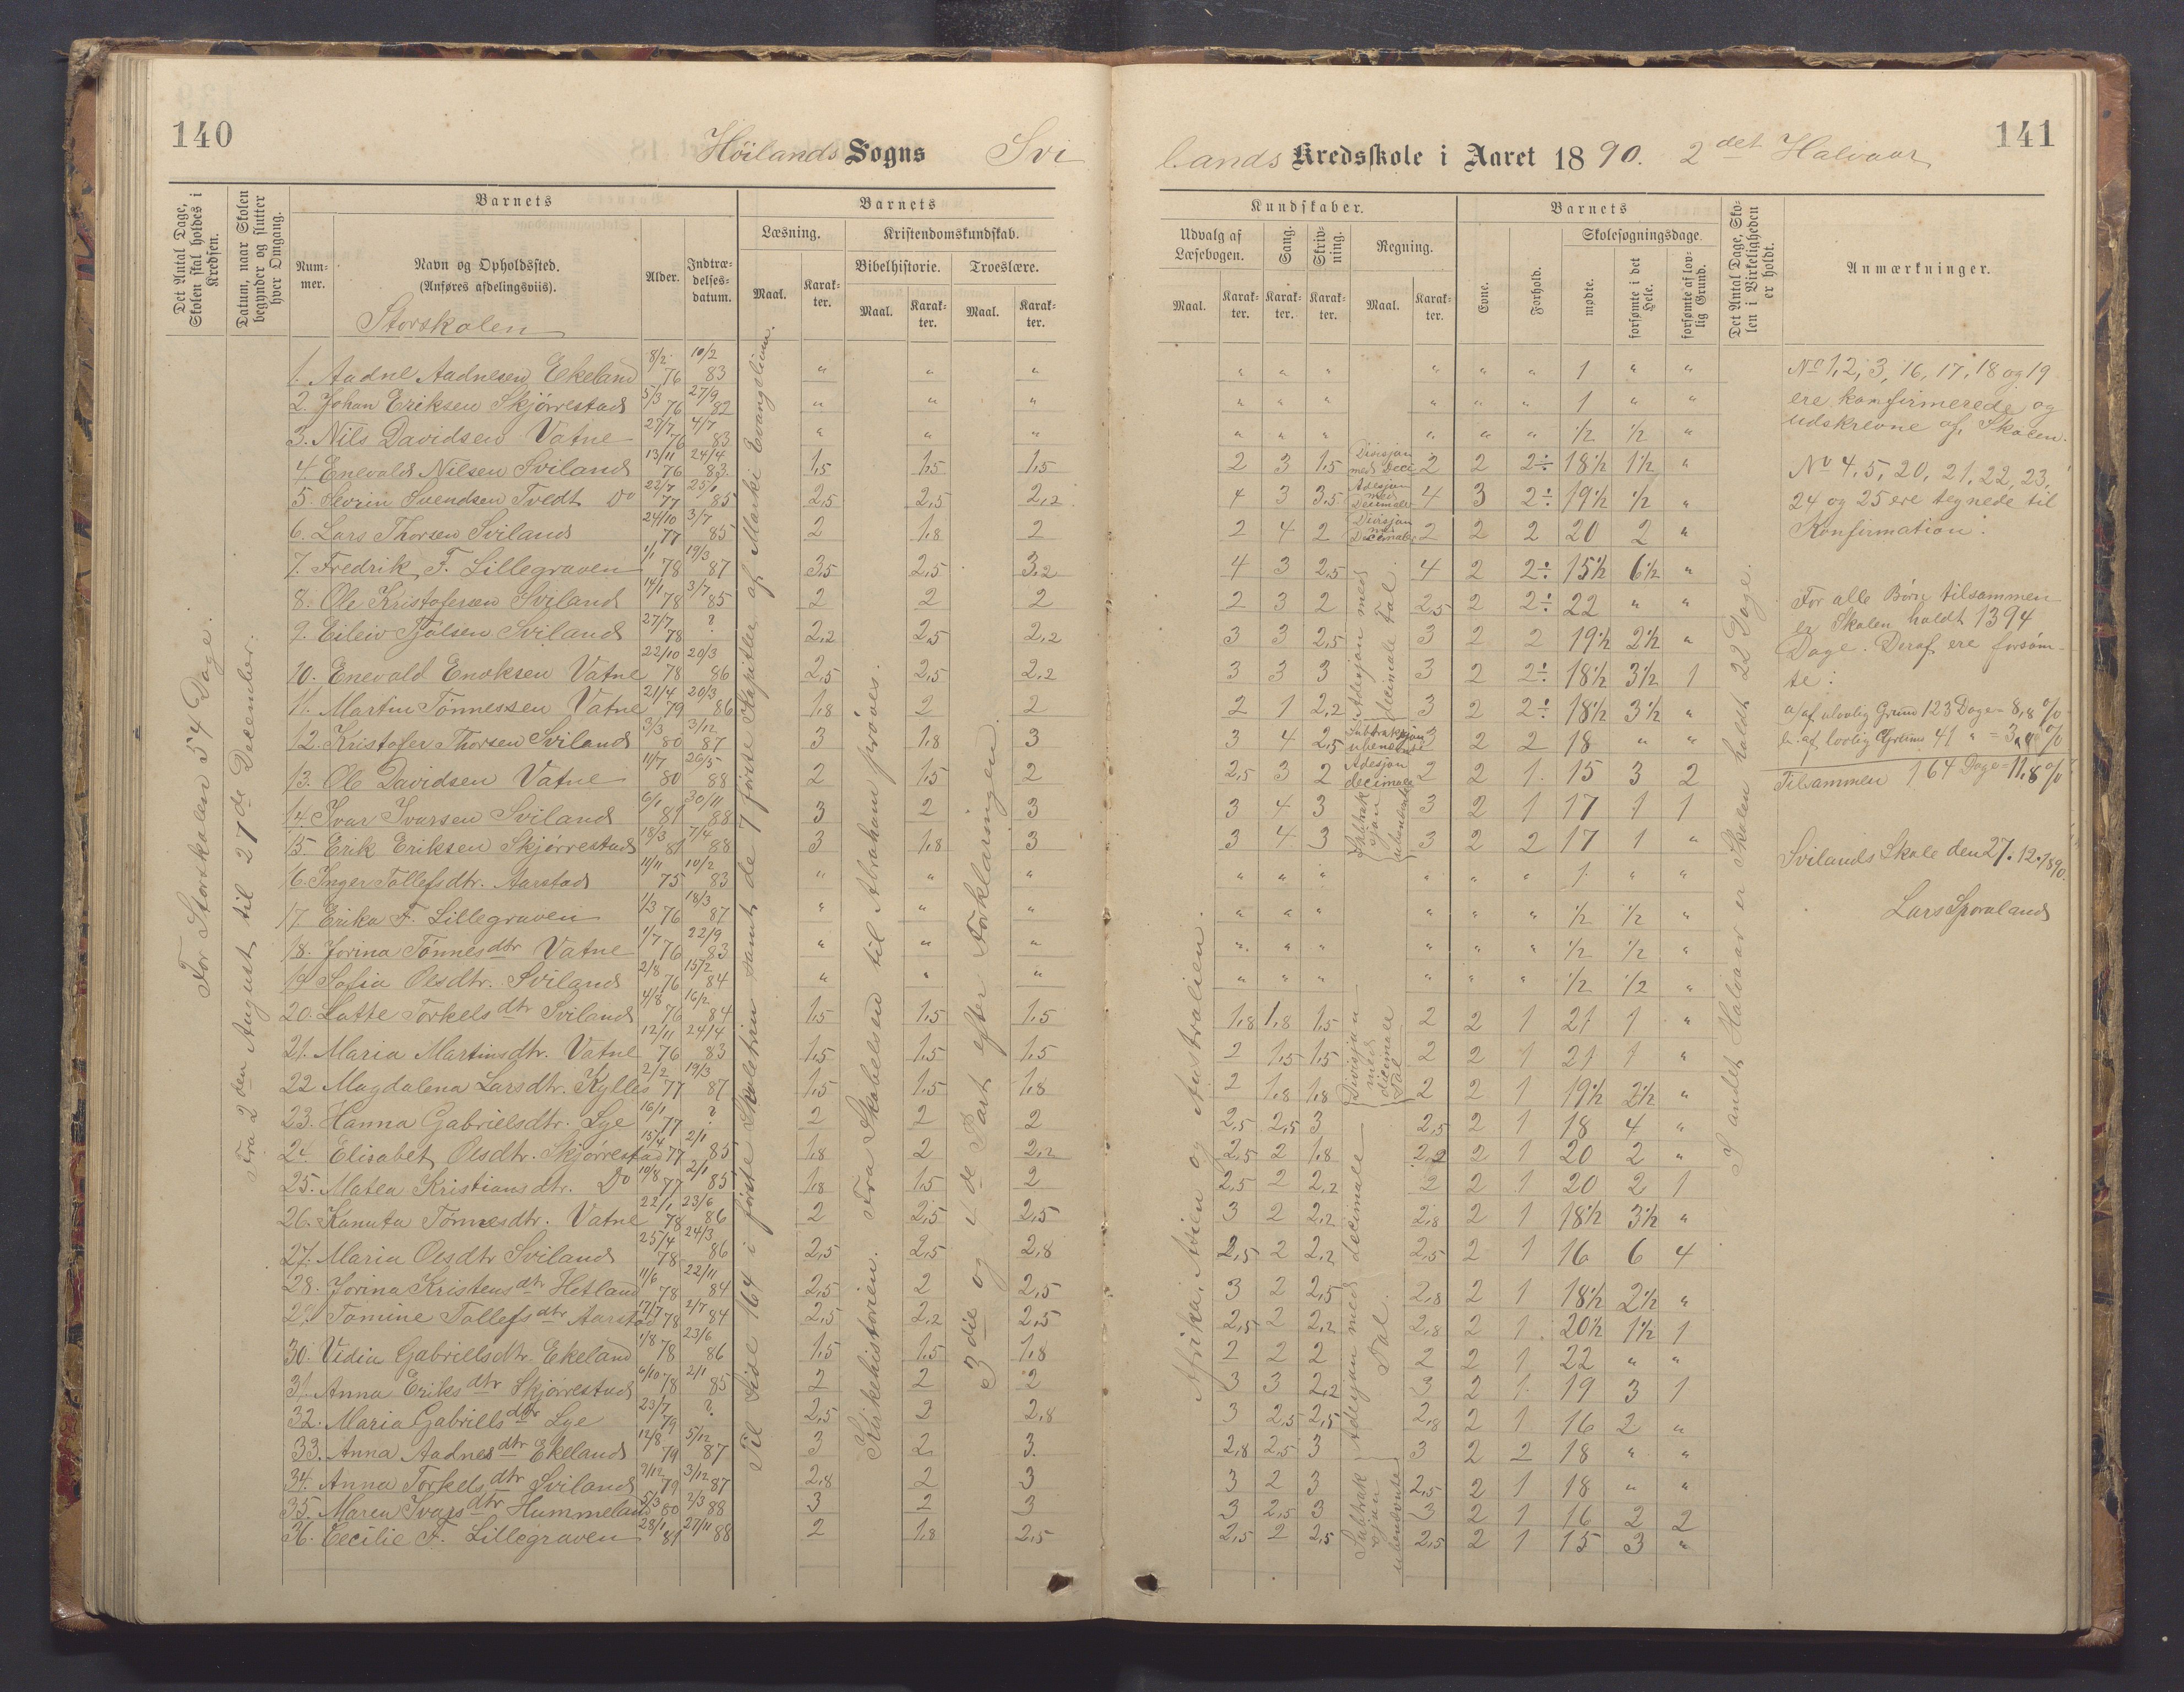 140
Höilands Sogns Svi
Det Antal Dage, Skolen skal holdes i Kredsen.
Datum, naar Skolen begynder og slutter hver Omgang.
Barnets
Barnets
Num-mer.
Navn og Opholdssted.
(Anføres afdelingsviis).
Storskolen
Alder.
Indtræ-delses-datum.
Læsning.
Kristendomskundskab.
Bibelhistorie.
Troeslære.
Maal. Karak-ter. Maal. Karak-ter. Maal. Karak-ter.
For Storskolen 54 Dage.
Fra 2den August til 27de December.
Til Side 164 i første Skoletrin samt de 7 første Kapitler af Marki Evangelium.
Kirkehistorien. Fra Skabelsen til Abraham prøves.
3die og 4de Part efter Forklaringen.
1. Aadne Aadnesen Ekeland 8/2 76 10/2 83 " " "
2. Johan Eriksen Skjørrestad 5/3 76 27/9 82 " " "
3. Nils Davidsen Vatne 27/7 76 4/7 83 " " "
4. Enevald Nilsen Sviland 13/11 76 24/4 83 1,5 1,5 1,5
5. Sevrin Svendsen Tvedt Do 22/7 77 25/1 85 2,5 2,5 2,2
6. Lars Thorsen Sviland 24/10 77 3/7 85 2 1,8 2
7. Fredrik F. Lillegraven 1/1 78 19/3 87 3,5 2,5 3,2
8. Ole Kristofersen Sviland 14/1 78 3/7 85 2 2 2
9. Eileiv Tjølsen Sviland 27/7 78 ? 2,2 2,5 2,2
10. Enevald Enoksen Vatne 22/10 78 20/3 86 2,5 2,5 2,2
11. Martin Tønnessen Vatne 21/4 79 20/3 86 1,8 2 2
12. Kristofer Thorsen Sviland 3/3 80 3/12 87 3 1,8 3
13. Ole Davidsen Vatne 11/7 80 26/5 88 2 1,5 2
14. Ivar Ivarsen Sviland 6/1 81 30/11 88 3 2 3
15. Erik Eriksen Skjørrestad 18/3 81 7/4 88 3 1,8 3
16. Inger Tollefsdtr. Aarstad 11/11 75 10/2 83 " " "
17. Erika F. Lillegraven 1/3 76 18/3 87 " " "
18. Jorina Tønnesdtr Vatne 1/7 76 22/9 83 " " "
19 Sofia Olsdtr. Sviland 2/8 76 15/2 84 " " "
20. Lotte Torkelsdtr Sviland 4/8 76 16/2 84 1,5 1,5 1,5
21. Maria Martinsdtr. Vatne 12/11 76 24/4 83 1,5 1,5 1,5
22 Magdalena Larsdtr. Kylles 2/2 77 19/3 87 1,5 1,5 1,8
23. Hanna Gabrielsdtr. Lye 16/1 77 ? 2 2 2
24. Elisabet Olsdtr. Skjørrestad 15/4 77 2/1 85 1,8 2 2,2
25. Matea Kristiansdtr. Do 10/8 77 2/1 85 1,8 1,5 2
26. Kanuta Tønnesdtr. Vatne 22/1 78 23/6 86 2 2,5 2,5
27. Maria Olsdtr Sviland 25/4 78 24/3 86 2,5 2,5 2,8
28. Jorina Kristensdtr Hetland 11/6 78 22/11 84 2,5 2 2,5
29. Tomine Tollefsdtr Aarstad 17/7 78 2/7 84 2,5 2,2 2,5
30. Vidia Gabrielsdtr. Ekeland 1/8 78 23/6 86 1,5 1,5 1,8
31. Anna Eriksdtr Skjørrestad 6/10 78 2/1 85 2 2 2
32. Maria Gabriellsdtr Lye 23/7 79 ? 2,5 2 2,8
33. Anna Aadnesdtr Ekeland 12/8 79 5/12 87 3 2 3
34. Anna Torkelsdtr Sviland 7/12 79 3/12 87 2,8 2 3
35. Maren Ivarsdtr Hummeland 5/3 80 2/3 88 3 2 3
36. Cecilie F. Lillegraven 28/1 81 27/11 88 2 1,8 2,5
141
lands Kredsskole i Aaret 1890. 2det Halvaar
Kundskaber.
Barnets
Udvalg af Læsebogen.
Sang.
Skriv-ning.
Regning.
Evne.
Forhold.
Skolesøgningsdage.
mødte.
forsømte i det Hele.
forsømte af lov-lig Grund.
Det Antal Dage, Sko-len i Virkeligheden er holdt.
Anmærkninger.
Maal. Karak-ter. Karak-ter. Karak-ter. Maal. Karak-ter.
Afrika, Asien og Australien.
I andet Halvaar er Skolen holdt 22 Dage.
" " " " " " 1 " "
" " " " " " 1 " "
" " " " " " 1/2 1/2 "
2 3 1,5 Divisjon med Deci 2 2 2÷ 18 1/2 1 1/2 "
4 3 3,5 Adesjon med Decimale 4 3 2÷ 19 1/2 1/2 "
2 4 2 Divisjon med Decimaler 2 2 2 20 2 "
4 3 2,5 4 2 2÷ 15 1/2 6 1/2 "
2 3 2 2,5 2 2÷ 22 " "
3 3 2,5 Adesjon med decimale Tal. 3 2 2 19 1/2 2 1/2 "
3 3 3 3 2 2÷ 18 1/2 3 1/2 1
2 1 2,2 3 2 2÷ 18 1/2 3 1/2 "
3 4 2,5 Subtraksjon ubenævnte 3 2 2 18 " "
2,5 3 2 Adesjon decimale 2 2 1 15 3 2
3 4 3 Subtraksjon ubenævnte 3 2 1 17 1 1
3 4 3 3 2 2 17 1 "
" " " " " " 1 " "
" " " " " " 1/2 1/2 "
" " " " " " 1/2 1/2 "
" " " " " " 1/2 1/2 "
1,8 1,8 1,5 2 2 1 21 1 "
2 1,5 1,5 Divisjon med decimale Tal 2 2 1 21 1 "
2 1,8 1,8 2 2 1 19 1/2 2 1/2 "
2,5 2,5 3 2,5 2 1 18 4 "
2,5 2 1,8 2,2 2 1 20 2 "
2,5 2 2,2 2 2 1 20 2 1
3 2 2,2 2,8 2 1 18 1/2 3 1/2 "
2,5 2 2,2 2,5 2 1 16 6 4
3 2 2,5 Adesjon med decimale Tal. 2,8 2 1 18 1/2 2 1/2 "
2,5 2 2,2 2,8 2 1 20 1/2 1 1/2 1
2 2 2 2 2 1 22 " "
3 3 2,2 3 2 1 19 3 1
3 2,5 2,5 2,8 2 1 16 2 "
2,8 2,5 3 3 2 2 18 " "
3 2 3 2,5 2 1 18 " "
3 2,5 3 Subtraksjon ubenævnte 3 2 1 16 2 2
2,5 2 2,5 2,5 2 1 15 3 "
No 1, 2, 3, 16, 17, 18 og 19
ere konfirmerede og
udskrevne af Skolen.
No 4, 5, 20, 21, 22, 23,
24 og 25 ere tegnede til
Konfirmation.
For alle Börn tilsammen
er Skolen holdt 1394
Dage. Deraf ere forsöm-
te:
a/ af ulovlig Grund 123 Dage = 8,8 %
b. af lovlig Grund 41 " = 3,0 %
Tilsammen 164 Dage = 11,8 %
Svilands Skole den 27.12.1890.
Lars Sporaland